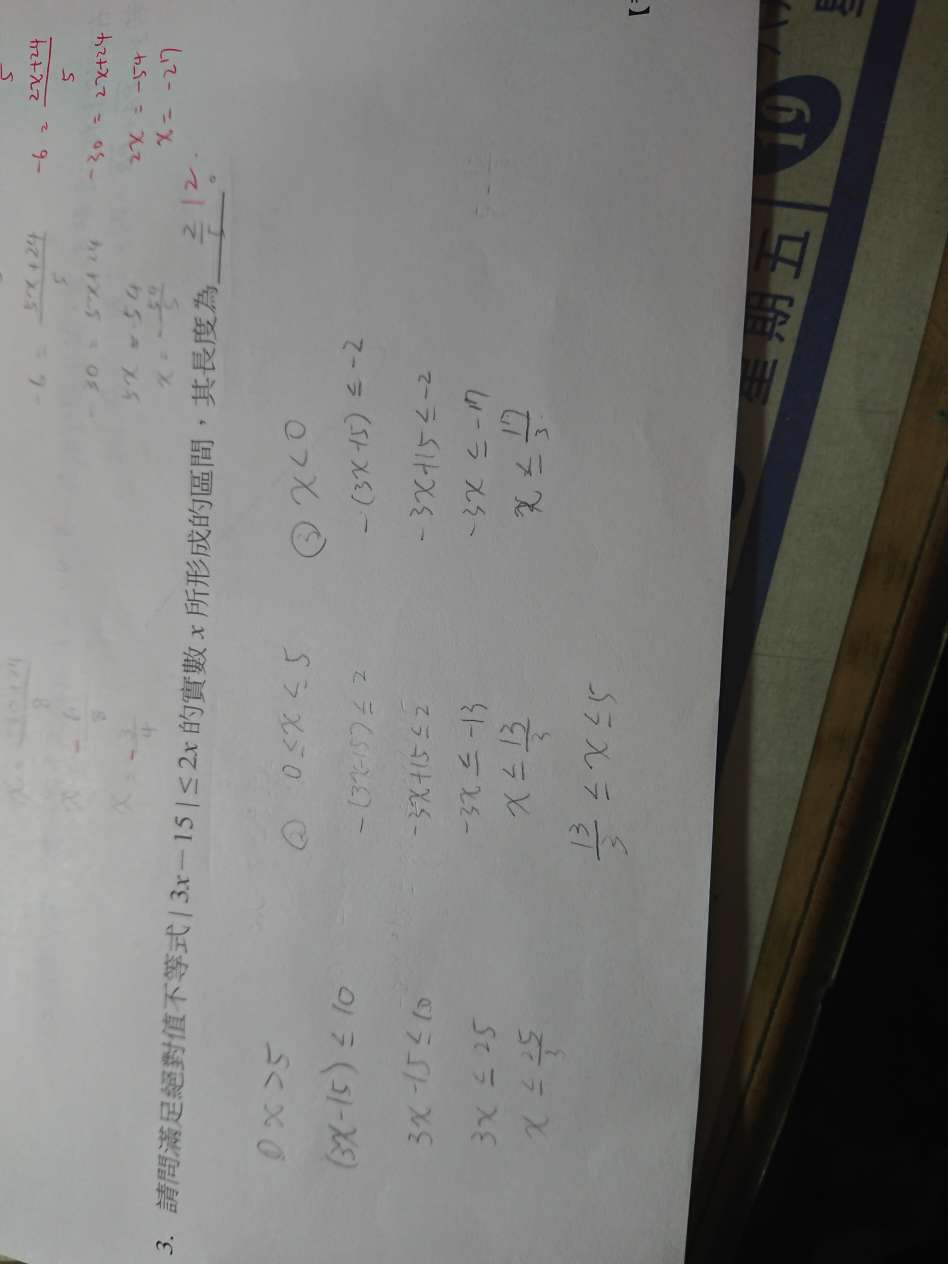 -6 = 5x+24
5
-30 = 5x+24
5x = -54
x = -54
5
5
-6 = 2x+24
5
-30 = 2x+24
2x = -54
x = -27
3. 請問滿足絕對值不等式 | 3x − 15 | ≤ 2x 的實數 x 所形成的區間，其長度為 12 。
x > 5
(3x-15) ≤ 10
3x-15 ≤ 10
3x ≤ 25
x ≤ 25
3
② 0 ≤ x ≤ 5
-(3x-15) ≤ 2
-3x+15 ≤ 2
-3x ≤ -13
x ≤ 13
3
13 ≤ x ≤ 5
3
③ x < 0
-(3x+15) ≤ -2
-3x+15 ≤ -2
-3x ≤ -17
x ≤ 17
3
星期五
19